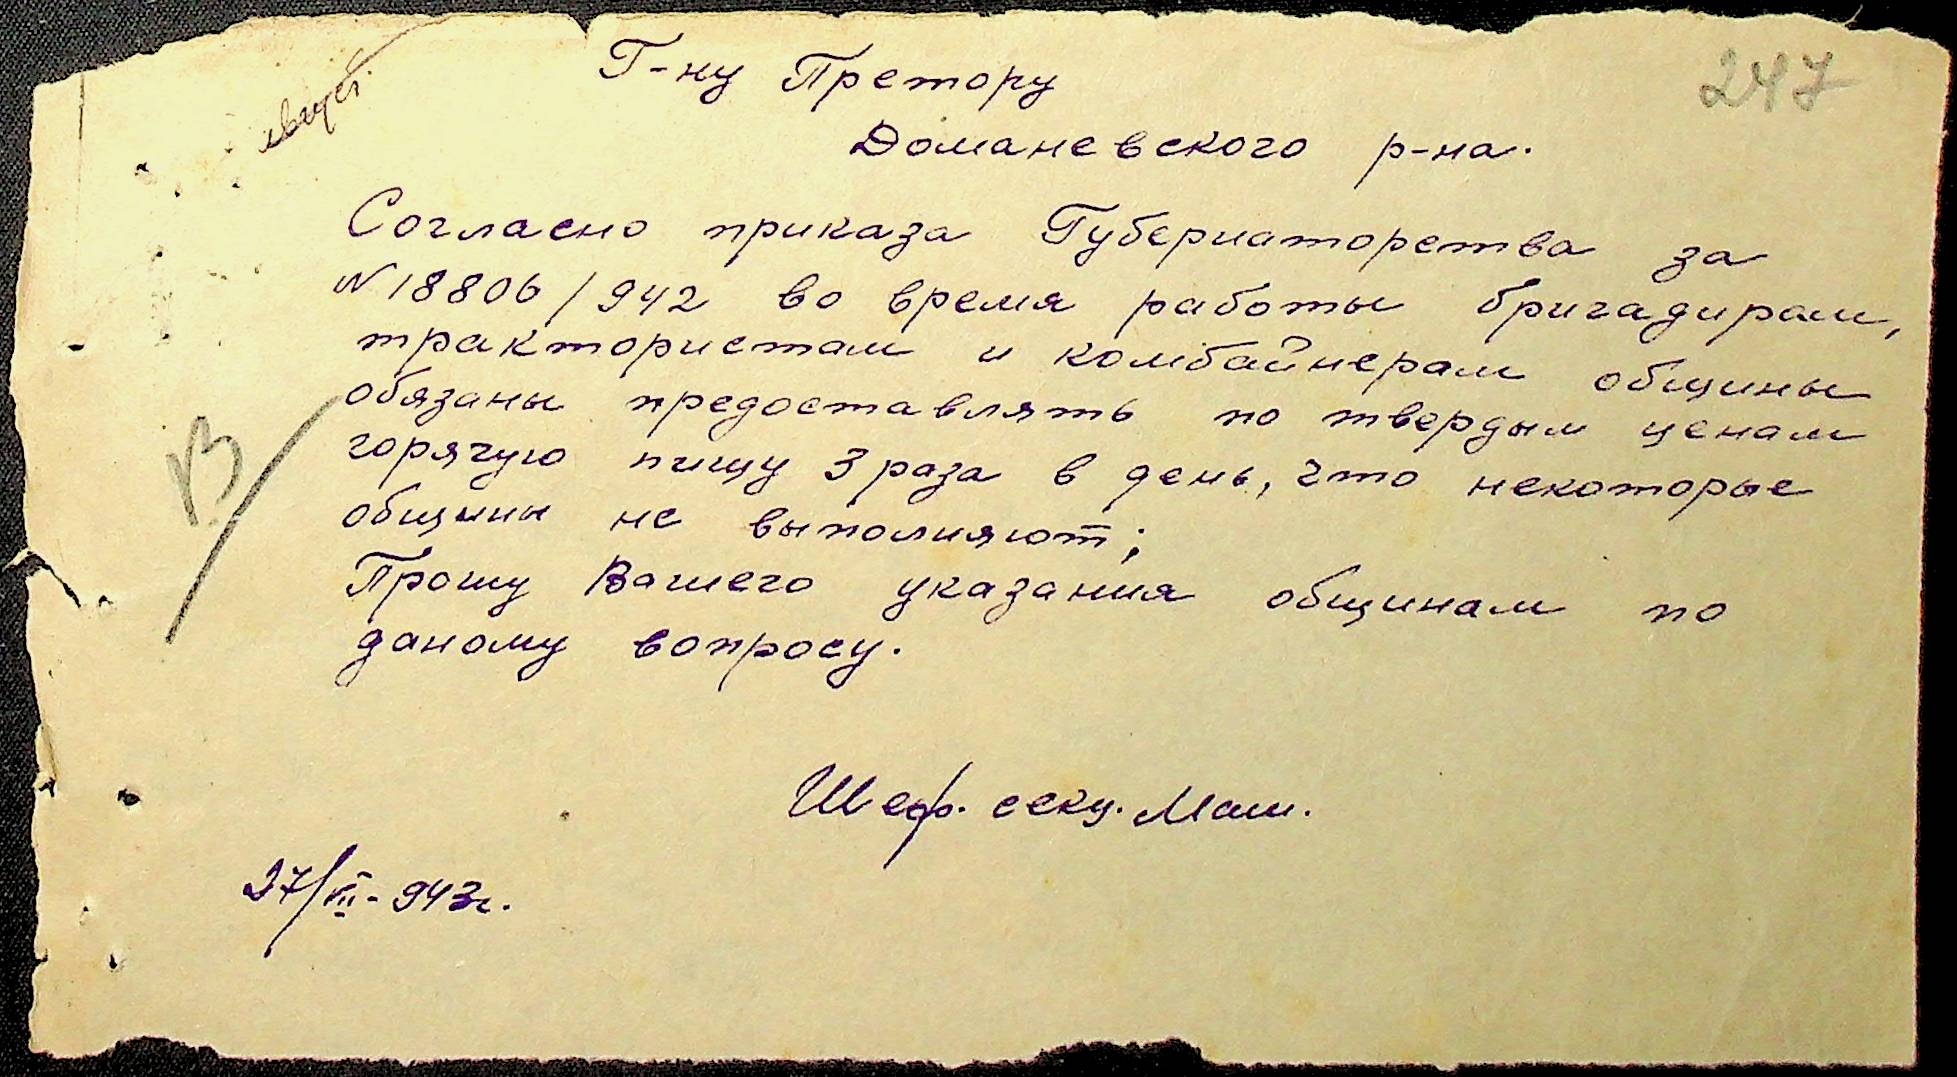 247
Г-ну Претору
Доманевского р-на.
Согласно приказа Губернаторства за
№ 18806/942 во время работы бригадирам,
трактористам и комбайнерам общины
обязаны предоставлять по твердым ценам
горячую пищу 3 раза в день, что некоторые
общины не выполняют;
Прошу Вашего указания общинам по
даному вопросу.
Шеф. секц. Маш.
27/VII-943г.